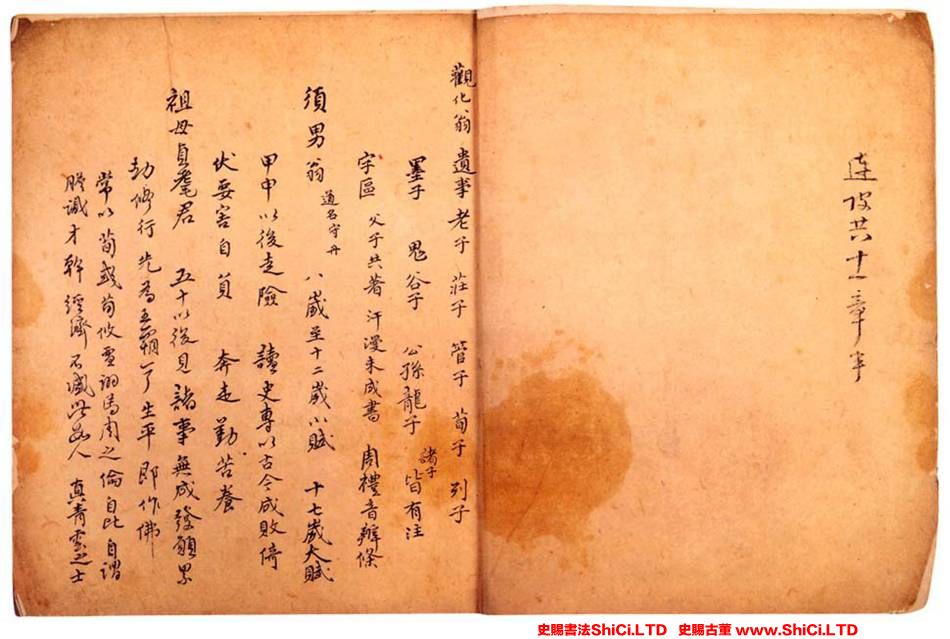 連改共十一章半
觀化翁遺事老子 莊子 管子 荀子 列子
墨子 鬼谷子 公孫龍子諸子皆有注
字區父子共著汗漫未成書 周禮音辨條
須男翁道名守丹 八歲至十二歲小賦 十七歲大賦
甲申以後走險 讀史專以古今成敗倚
伏要害自負 奔走勤苦養
祖母貞髦君 五十以後見諸事無成發願累
劫修行先為五霸了生平即作佛
常以荀彧荀攸賈詡馬周之倫自比自謂
膽識才幹經濟不減此數人 真青雲之士
史賜書法ShiCi.LTD 史賜古董 www.ShiCi.LTD